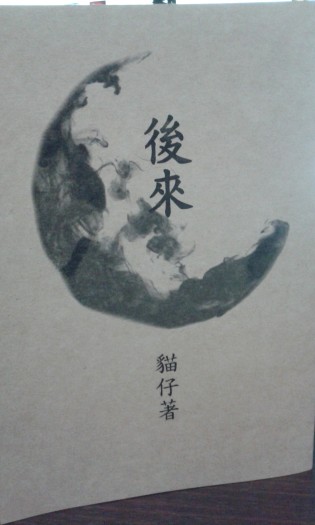 後來
貓仔著